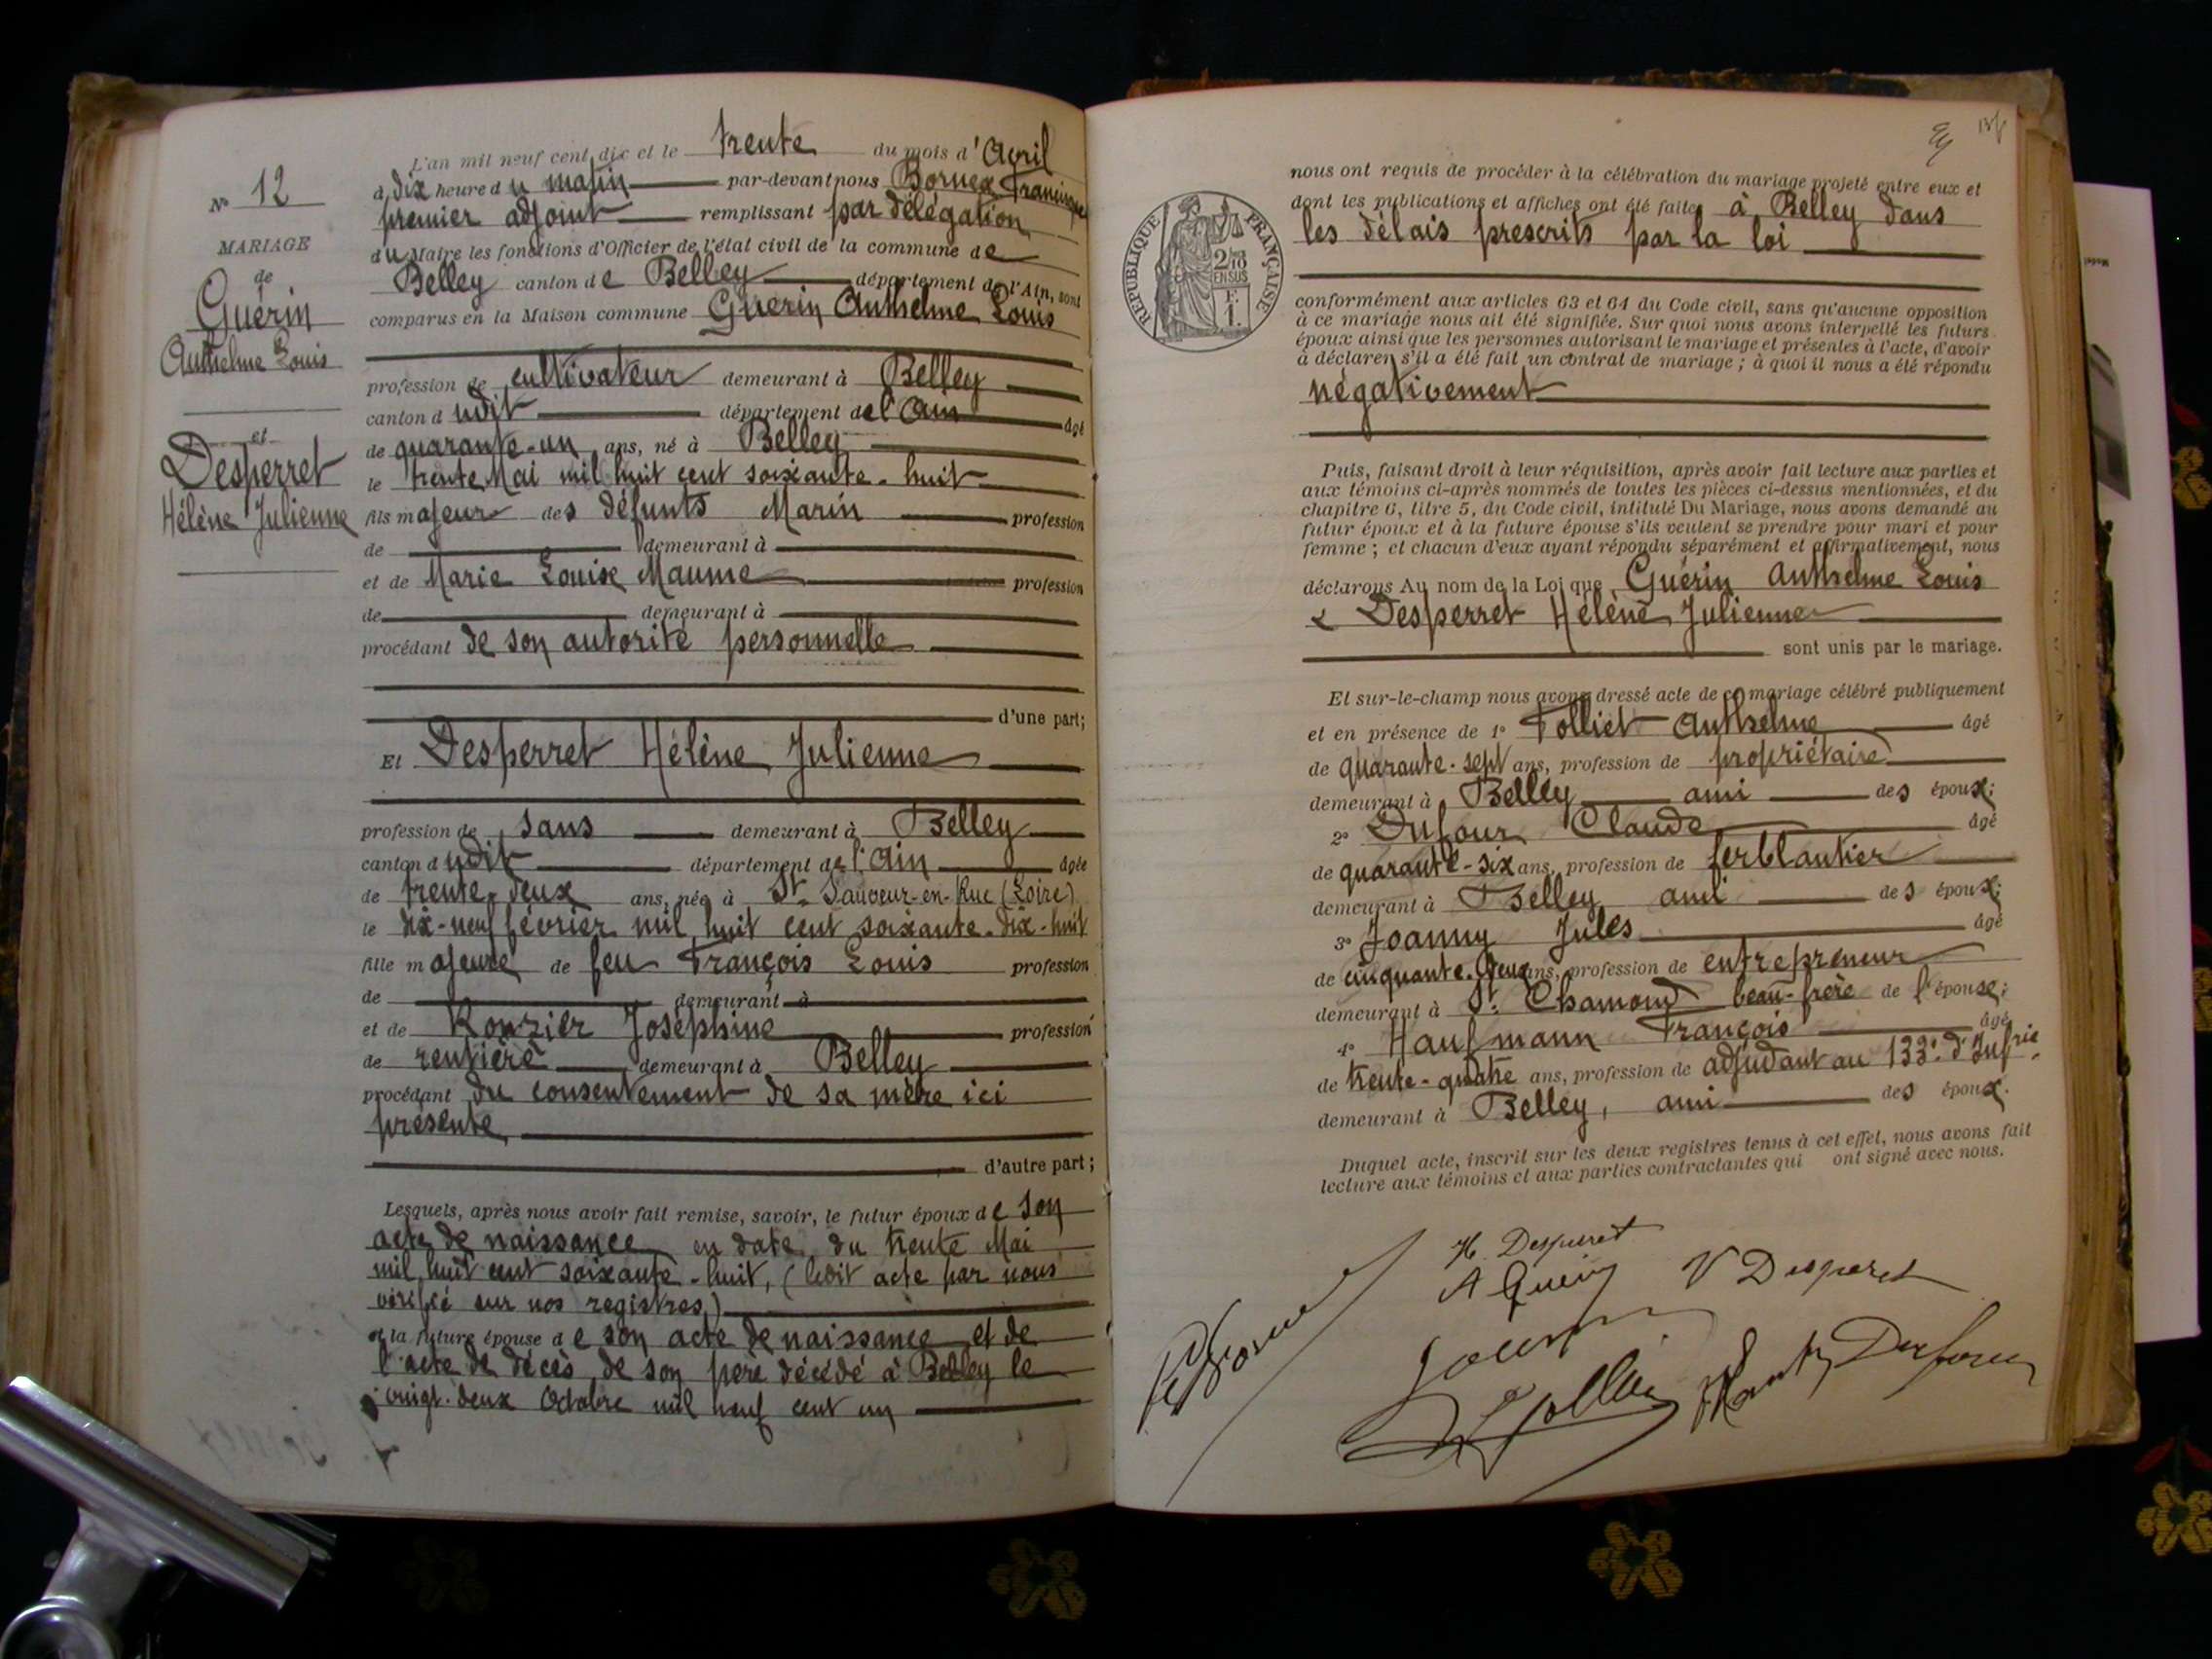 N° 12
MARIAGE
de
Guérin
Anthelme Louis
et
Desperret
Hélène Julienne
L'an mil neuf cent dix et le trente du mois d'Avril
à dix heure du matin par-devant nous Bornex Francisque
premier adjoint remplissant par délégation
du Maire les fonctions d'Officier de l'état civil de la commune de
Belley canton de Belley département de l'Ain, sont
comparus en la Maison commune Guérin Anthelme Louis
profession de cultivateur demeurant à Belley
canton dudit département de l'Ain âgé
de quarante-un ans, né à Belley
le trente Mai mil huit cent soixante-huit
fils majeur des défunts Marin profession
de demeurant à
et de Marie Louise Maume profession
de demeurant à
procédant de son autorité personnelle
d'une part;
Et Desperret Hélène Julienne
profession de sans demeurant à Belley
canton dudit département de l'Ain âgée
de trente-deux ans, née à St. Sauveur-en-Rue (Loire)
le dix-neuf février mil huit cent soixante-dix-huit
fille majeure de feu François Louis profession
de demeurant à
et de Rouzier Joséphine profession
de rentière demeurant à Belley
procédant du consentement de sa mère ici
présente
d'autre part;
Lesquels, après nous avoir fait remise, savoir, le futur époux de son
acte de naissance en date du trente Mai
mil huit cent soixante-huit, (ledit acte par nous
vérifié sur nos registres)
et la future épouse de son acte de naissance et de
l'acte de décès de son père décédé à Belley le
vingt-deux Octobre mil neuf cent un
RÉPUBLIQUE FRANÇAISE
2/10
EN SUS
F.
1.
nous ont requis de procéder à la célébration du mariage projeté entre eux et
dont les publications et affiches ont été faites à Belley dans
les délais prescrits par la loi
conformément aux articles 63 et 64 du Code civil, sans qu'aucune opposition
à ce mariage nous ait été signifiée. Sur quoi nous avons interpellé les futurs
époux ainsi que les personnes autorisant le mariage et présentes à l'acte, d'avoir
à déclarer s'il a été fait un contrat de mariage; à quoi il nous a été répondu
négativement
Puis, faisant droit à leur réquisition, après avoir fait lecture aux parties et
aux témoins ci-après nommés de toutes les pièces ci-dessus mentionnées, et du
chapitre 6, titre 5, du Code civil, intitulé Du Mariage, nous avons demandé au
futur époux et à la future épouse s'ils veulent se prendre pour mari et pour
femme; et chacun d'eux ayant répondu séparément et affirmativement, nous
déclarons Au nom de la Loi que Guérin Anthelme Louis
& Desperret Hélène Julienne
sont unis par le mariage.
Et sur-le-champ nous avons dressé acte de ce mariage célébré publiquement
et en présence de 1° Folliet Anthelme âgé
de quarante-sept ans, profession de propriétaire
demeurant à Belley ami des époux;
2° Dufour Claude âgé
de quarante-six ans, profession de ferblantier
demeurant à Belley ami des époux;
3° Joanny Jules âgé
de cinquante-deux ans, profession de entrepreneur
demeurant à St. Chamond beau-frère de l'épouse;
4° Haufmann François âgé
de trente-quatre ans, profession de adjudant au 133e d'Infrie
demeurant à Belley, ami des époux.
Duquel acte, inscrit sur les deux registres tenus à cet effet, nous avons fait
lecture aux témoins et aux parties contractantes qui ont signé avec nous.
H. Desperret
A Guérin V Desperet
Dufour